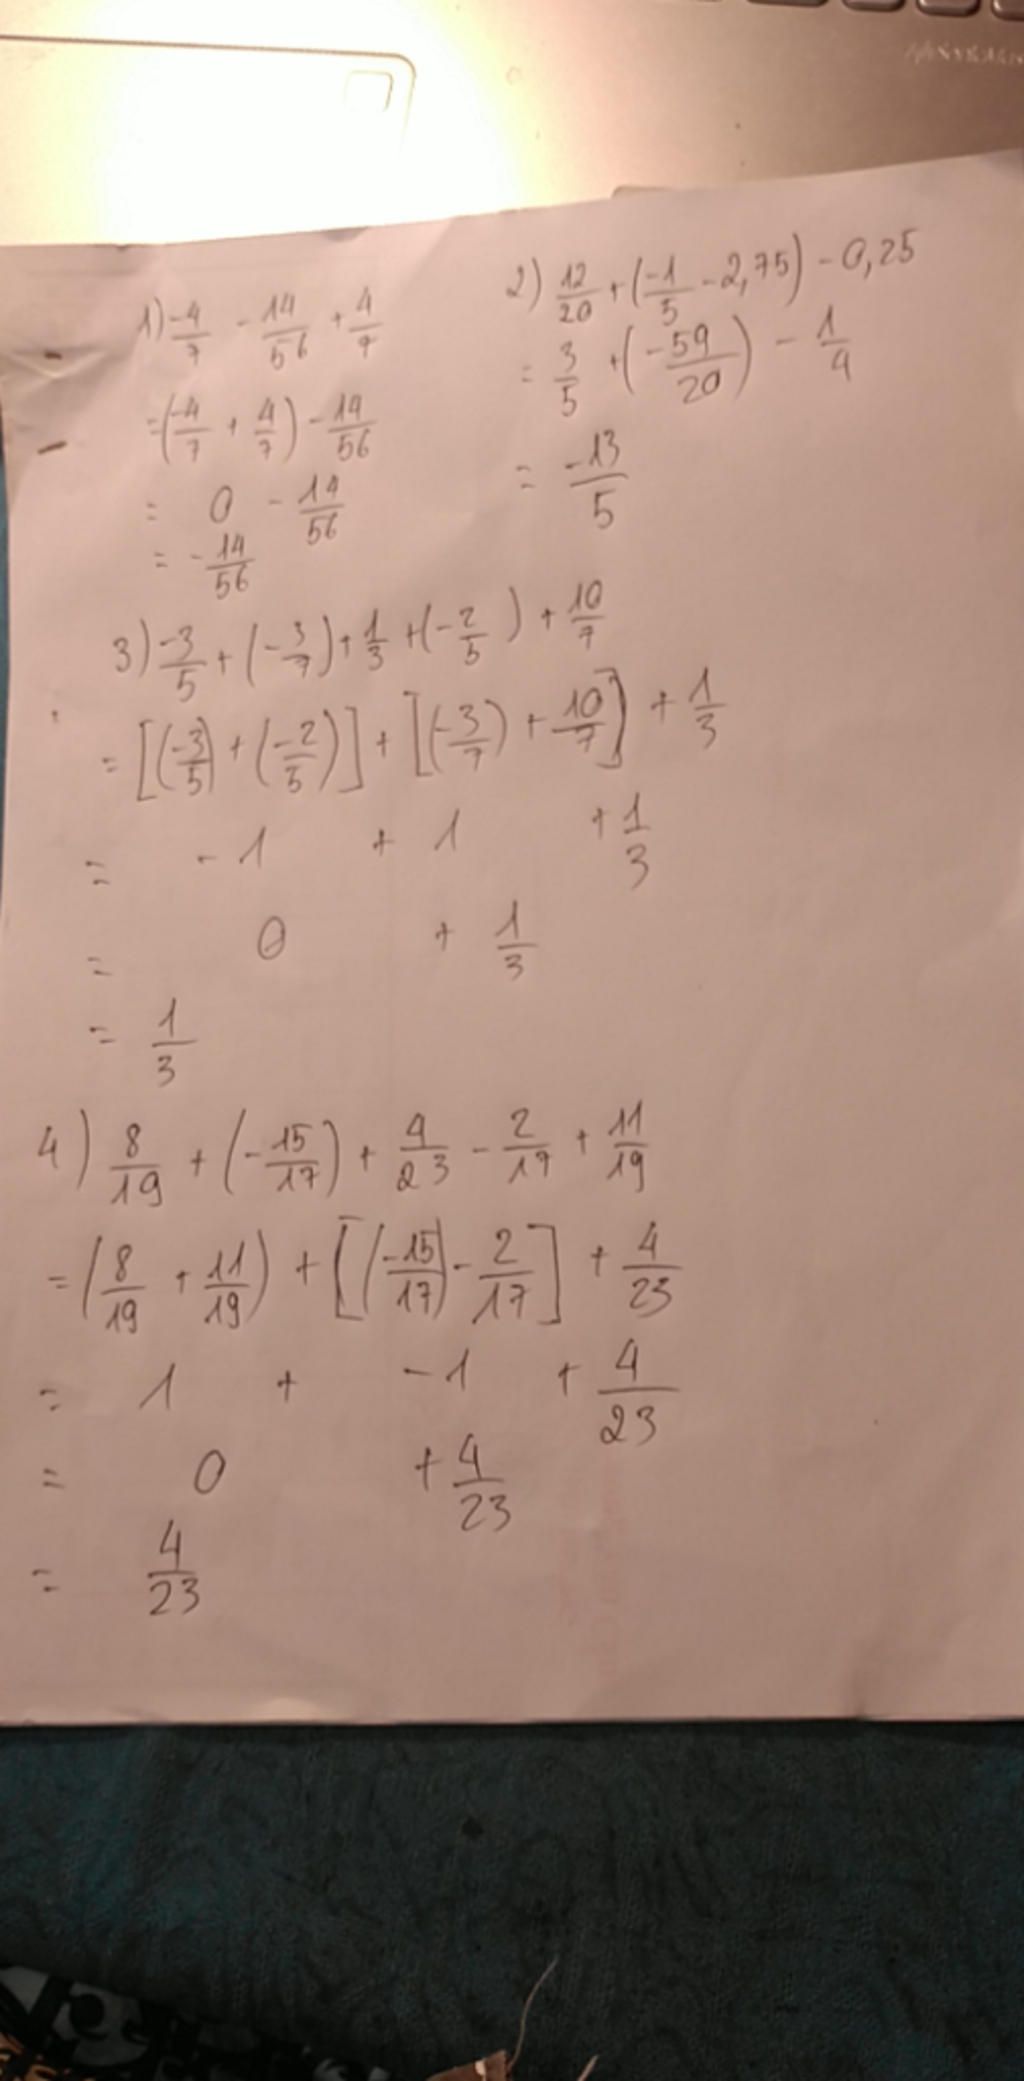 1) -4/7 - 14/56 + 4/7
= (-4/7 + 4/7) - 14/56
= 0 - 14/56
= - 14/56
2) 12/20 + (-1/5 - 2,75) - 0,25
= 3/5 + (-59/20) - 1/4
= -13/5
3) -3/5 + (-3/7) + 1/3 + (-2/5) + 10/7
= [(-3/5) + (-2/5)] + [(-3/7) + 10/7] + 1/3
= -1 + 1 + 1/3
= 0 + 1/3
= 1/3
4) 8/19 + (-15/17) + 4/23 - 2/17 + 11/19
= (8/19 + 11/19) + [(-15/17) - 2/17] + 4/23
= 1 + -1 + 4/23
= 0 + 4/23
= 4/23